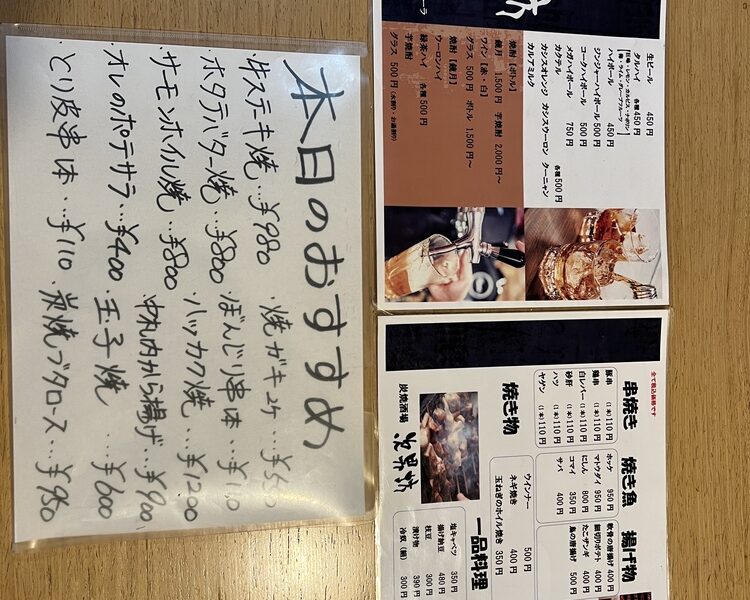 本日のおすすめ
・牛ステーキ焼…¥980
・ホタテバター焼…¥800
・サーモンホイル焼…¥800
・オレのポテサラ…¥400
・とり皮串一本…¥110
焼ガキ2ケ
ぼんじり串一本…¥110
ハッカク焼…¥1200
から揚げ…¥900
玉子焼…¥600
炭焼ブタロース…¥980
生ビール 450円
タルハイ 各種 450円
ハイボール 450円
ジンジャーハイボール 500円
コークハイボール 500円
メガハイボール 750円
カクテル 各種 500円
カシスオレンジ カシスウーロン ターニャン
カルアミルク
焼酎【ボトル】
鏡月 1,500円 芋焼酎 2,000円～
ワイン【赤・白】
グラス 500円 ボトル 1,500円～
焼酎【鏡月】
ウーロンハイ
緑茶ハイ 各種 500円
芋焼酎
グラス 500円(水割り・お湯割り)
全て税込価格です
串焼き
豚串 (1本) 110円
鶏串 (1本) 110円
白レバー (1本) 110円
砂肝 (1本) 110円
ハツ (1本) 110円
ヤゲン (1本) 110円
焼き魚
ホッケ 950円
マトウダイ 950円
にしん 800円
コマイ 350円
サバ 400円
揚げ物
軟骨の唐揚げ 400円
細切りポテト 400円
たこザンギ 400円
鳥の唐揚げ 500円
焼き物
ウインナー 500円
ネギ焼き 400円
玉ねぎのホイル焼き 350円
一品料理
塩キャベツ 350円
揚げ納豆 480円
枝豆 300円
漬け物 390円
冷奴(鍋) 300円
炭焼酒場